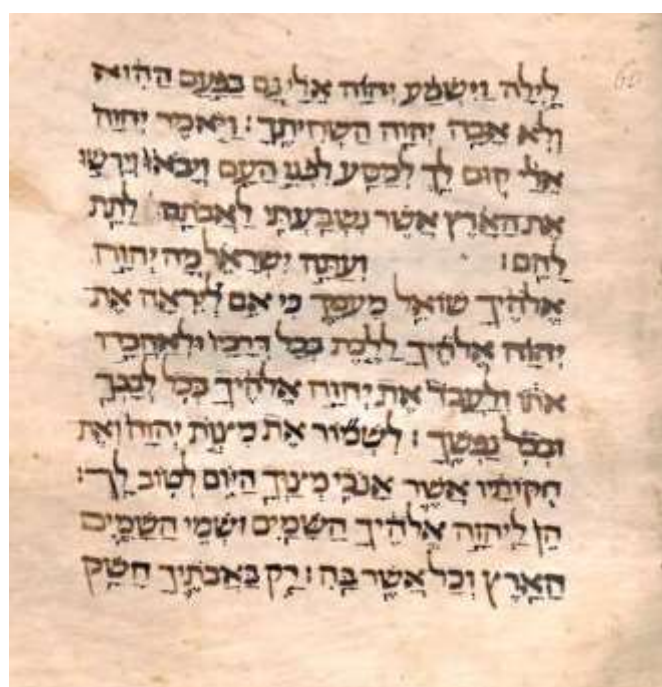 לָיְלָה וַיִּשְׁמַע יְהוָה אֵלַי גַּם בַּפַּעַם הַהִוא
וְלֹא אָבָה יְהוָה הַשְׁחִיתֶךָ׃ וַיֹּאמֶר יְהוָה
אֵלַי קוּם לֵךְ לְמַסַּע לִפְנֵי הָעָם וְיָבֹאוּ וְיִרְשׁוּ
אֶת הָאָרֶץ אֲשֶׁר נִשְׁבַּעְתִּי לַאֲבֹתָם לָתֵת
לָהֶם׃ וְעַתָּה יִשְׂרָאֵל מָה יְהוָה
אֱלֹהֶיךָ שׁוֹאֵל מֵעִמָּךְ כִּי אִם לְיִרְאָה אֶת
יְהוָה אֱלֹהֶיךָ לָלֶכֶת בְּכָל דְּרָכָיו וּלְאַהֲבָה
אֹתוֹ וְלַעֲבֹד אֶת יְהוָה אֱלֹהֶיךָ בְּכָל לְבָבְךָ
וּבְכָל נַפְשֶׁךָ׃ לִשְׁמוֹר אֶת מִצְוֹת יְהוָה וְאֶת
חֻקּוֹתָיו אֲשֶׁר אָנֹכִי מְצַוְּךָ הַיּוֹם לְטוֹב לָךְ׃
הֵן לַיהוָה אֱלֹהֶיךָ הַשָּׁמַיִם וּשְׁמֵי הַשָּׁמָיִם
הָאָרֶץ וְכָל אֲשֶׁר בָּהּ׃ רַק בַּאֲבֹתֶיךָ חָשַׁק